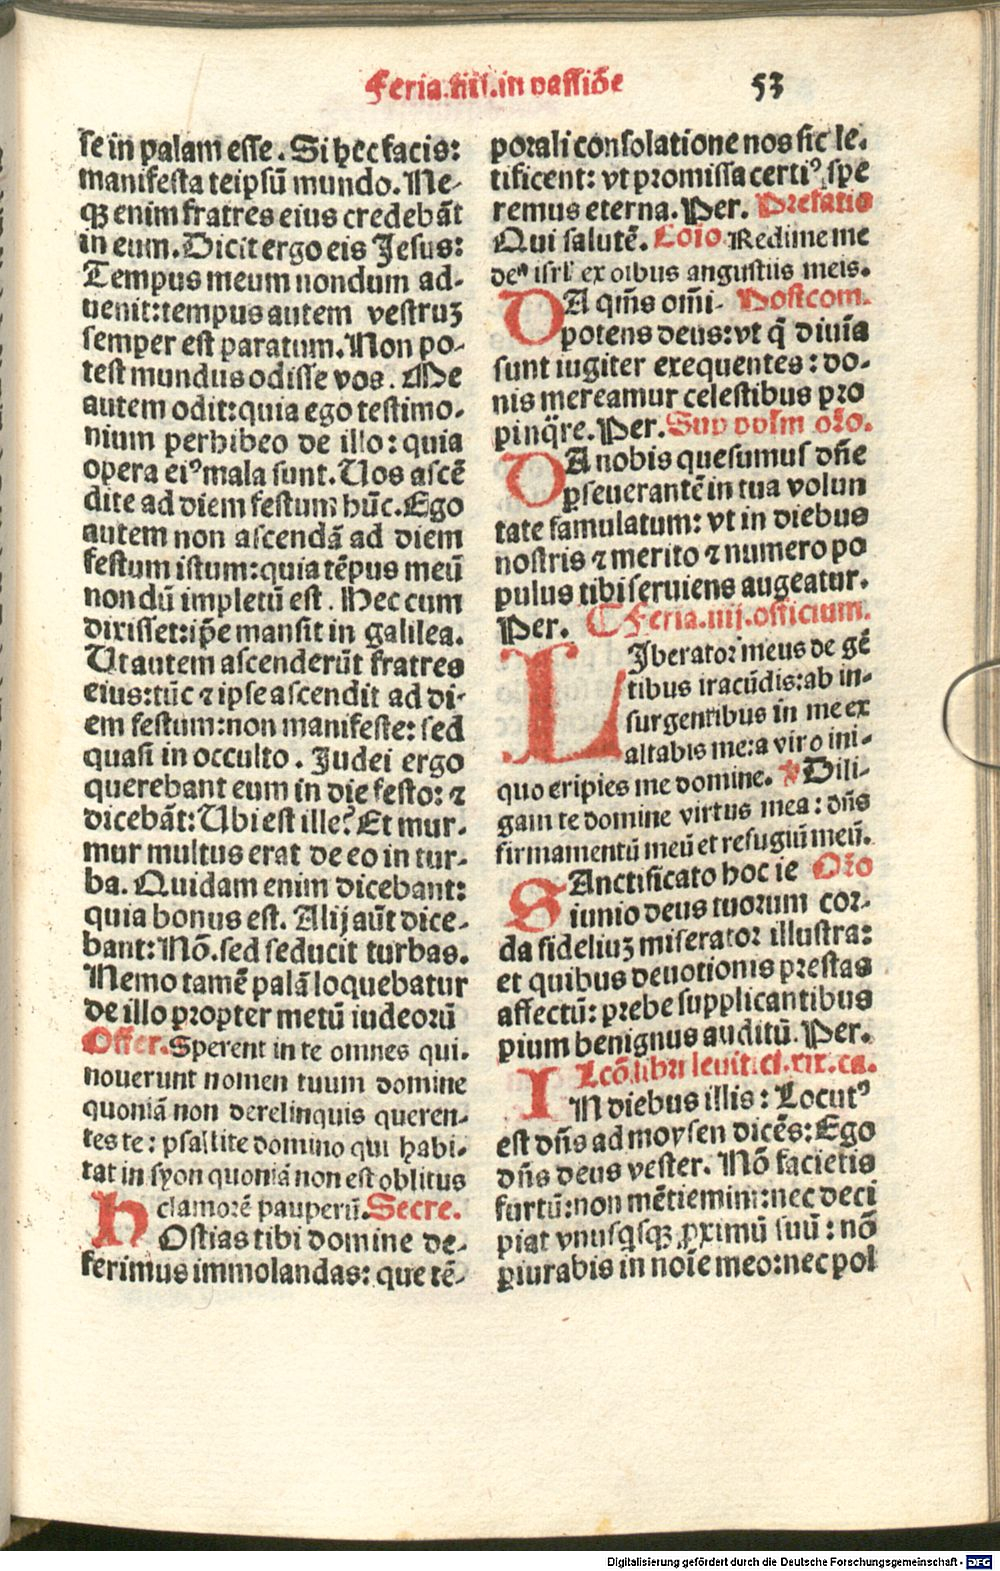 Feria.iiij.in passiõe 53
se in palam esse. Si hec facis:
manifesta teipsũ mundo. Ne-
qꝫ enim fratres eius credebãt
in eum. Dicit ergo eis Jesus:
Tempus meum nondum ad-
uenit: tempus autem vestruꝫ
semper est paratum. Non po-
test mundus odisse vos. Me
autem odit: quia ego testimo-
nium perhibeo de illo: quia
opera eiꝰ mala sunt. Uos ascẽ
dite ad diem festum hũc. Ego
autem non ascendã ad diem
festum istum: quia tẽpus meũ
nondũ impletũ est. Hec cum
dixisset: ip̃e mansit in galilea.
Ut autem ascenderũt fratres
eius: tũc ⁊ ipse ascendit ad di-
em festum: non manifeste: sed
quasi in occulto. Judei ergo
querebant eum in die festo: ⁊
dicebãt: Ubi est ille? Et mur-
mur multus erat de eo in tur-
ba. Quidam enim dicebant:
quia bonus est. Alij aũt dice-
bant: Nõ. sed seducit turbas.
Nemo tamẽ palã loquebatur
de illo propter metũ iudeorũ
Offer. Sperent in te omnes qui-
nouerunt nomen tuum domine
quoniã non derelinquis queren-
tes te: psallite domino qui habi-
tat in syon quoniã non est oblitus
clamorẽ pauperũ. Secre.
HOstias tibi domine de-
ferimus immolandas: que tẽ-
porali consolatione nos sic le-
tificent: vt promissa certiꝰ spe
remus eterna. Per. Prefatio
Qui salutẽ. Cõio Redime me
deꝰ isrl̃ ex oĩbus angustiis meis.
DA qm̃s om̃i- Postcom.
potens deus: vt q̃ diuĩa
sunt iugiter exequentes: do-
nis mereamur celestibus pro
pinq̃re. Per. Sup pplm oro.
DA nobis quesumus dñe
ꝑseuerantẽ in tua volun
tate famulatum: vt in diebus
nostris ⁊ merito ⁊ numero po
pulus tibi seruiens augeatur.
Per. ¶ Feria.iiij.officium.
LIberator meus de gẽ
tibus iracũdis: ab in-
surgentibus in me ex
altabis me: a viro ini-
quo eripies me domine. ps Dili-
gam te domine virtus mea: dñs
firmamentũ meũ et refugiũ meũ.
SAnctificato hoc ie Oro
iunio deus tuorum cor-
da fideliuꝫ miserator illustra:
et quibus deuotionis prestas
affectũ: prebe supplicantibus
pium benignus auditũ. Per.
Lcõ. libri leuitici.xix.ca.
IN diebus illis: Locutꝰ
est dñs ad moysen dicẽs: Ego
dñs deus vester. Nõ facietis
furtũ: non mẽtiemini: nec deci
piat vnusqsqꝫ ꝓximũ suũ: nõ
ꝑiurabis in noĩe meo: nec pol
Digitalisierung gefördert durch die Deutsche Forschungsgemeinschaft - DFG